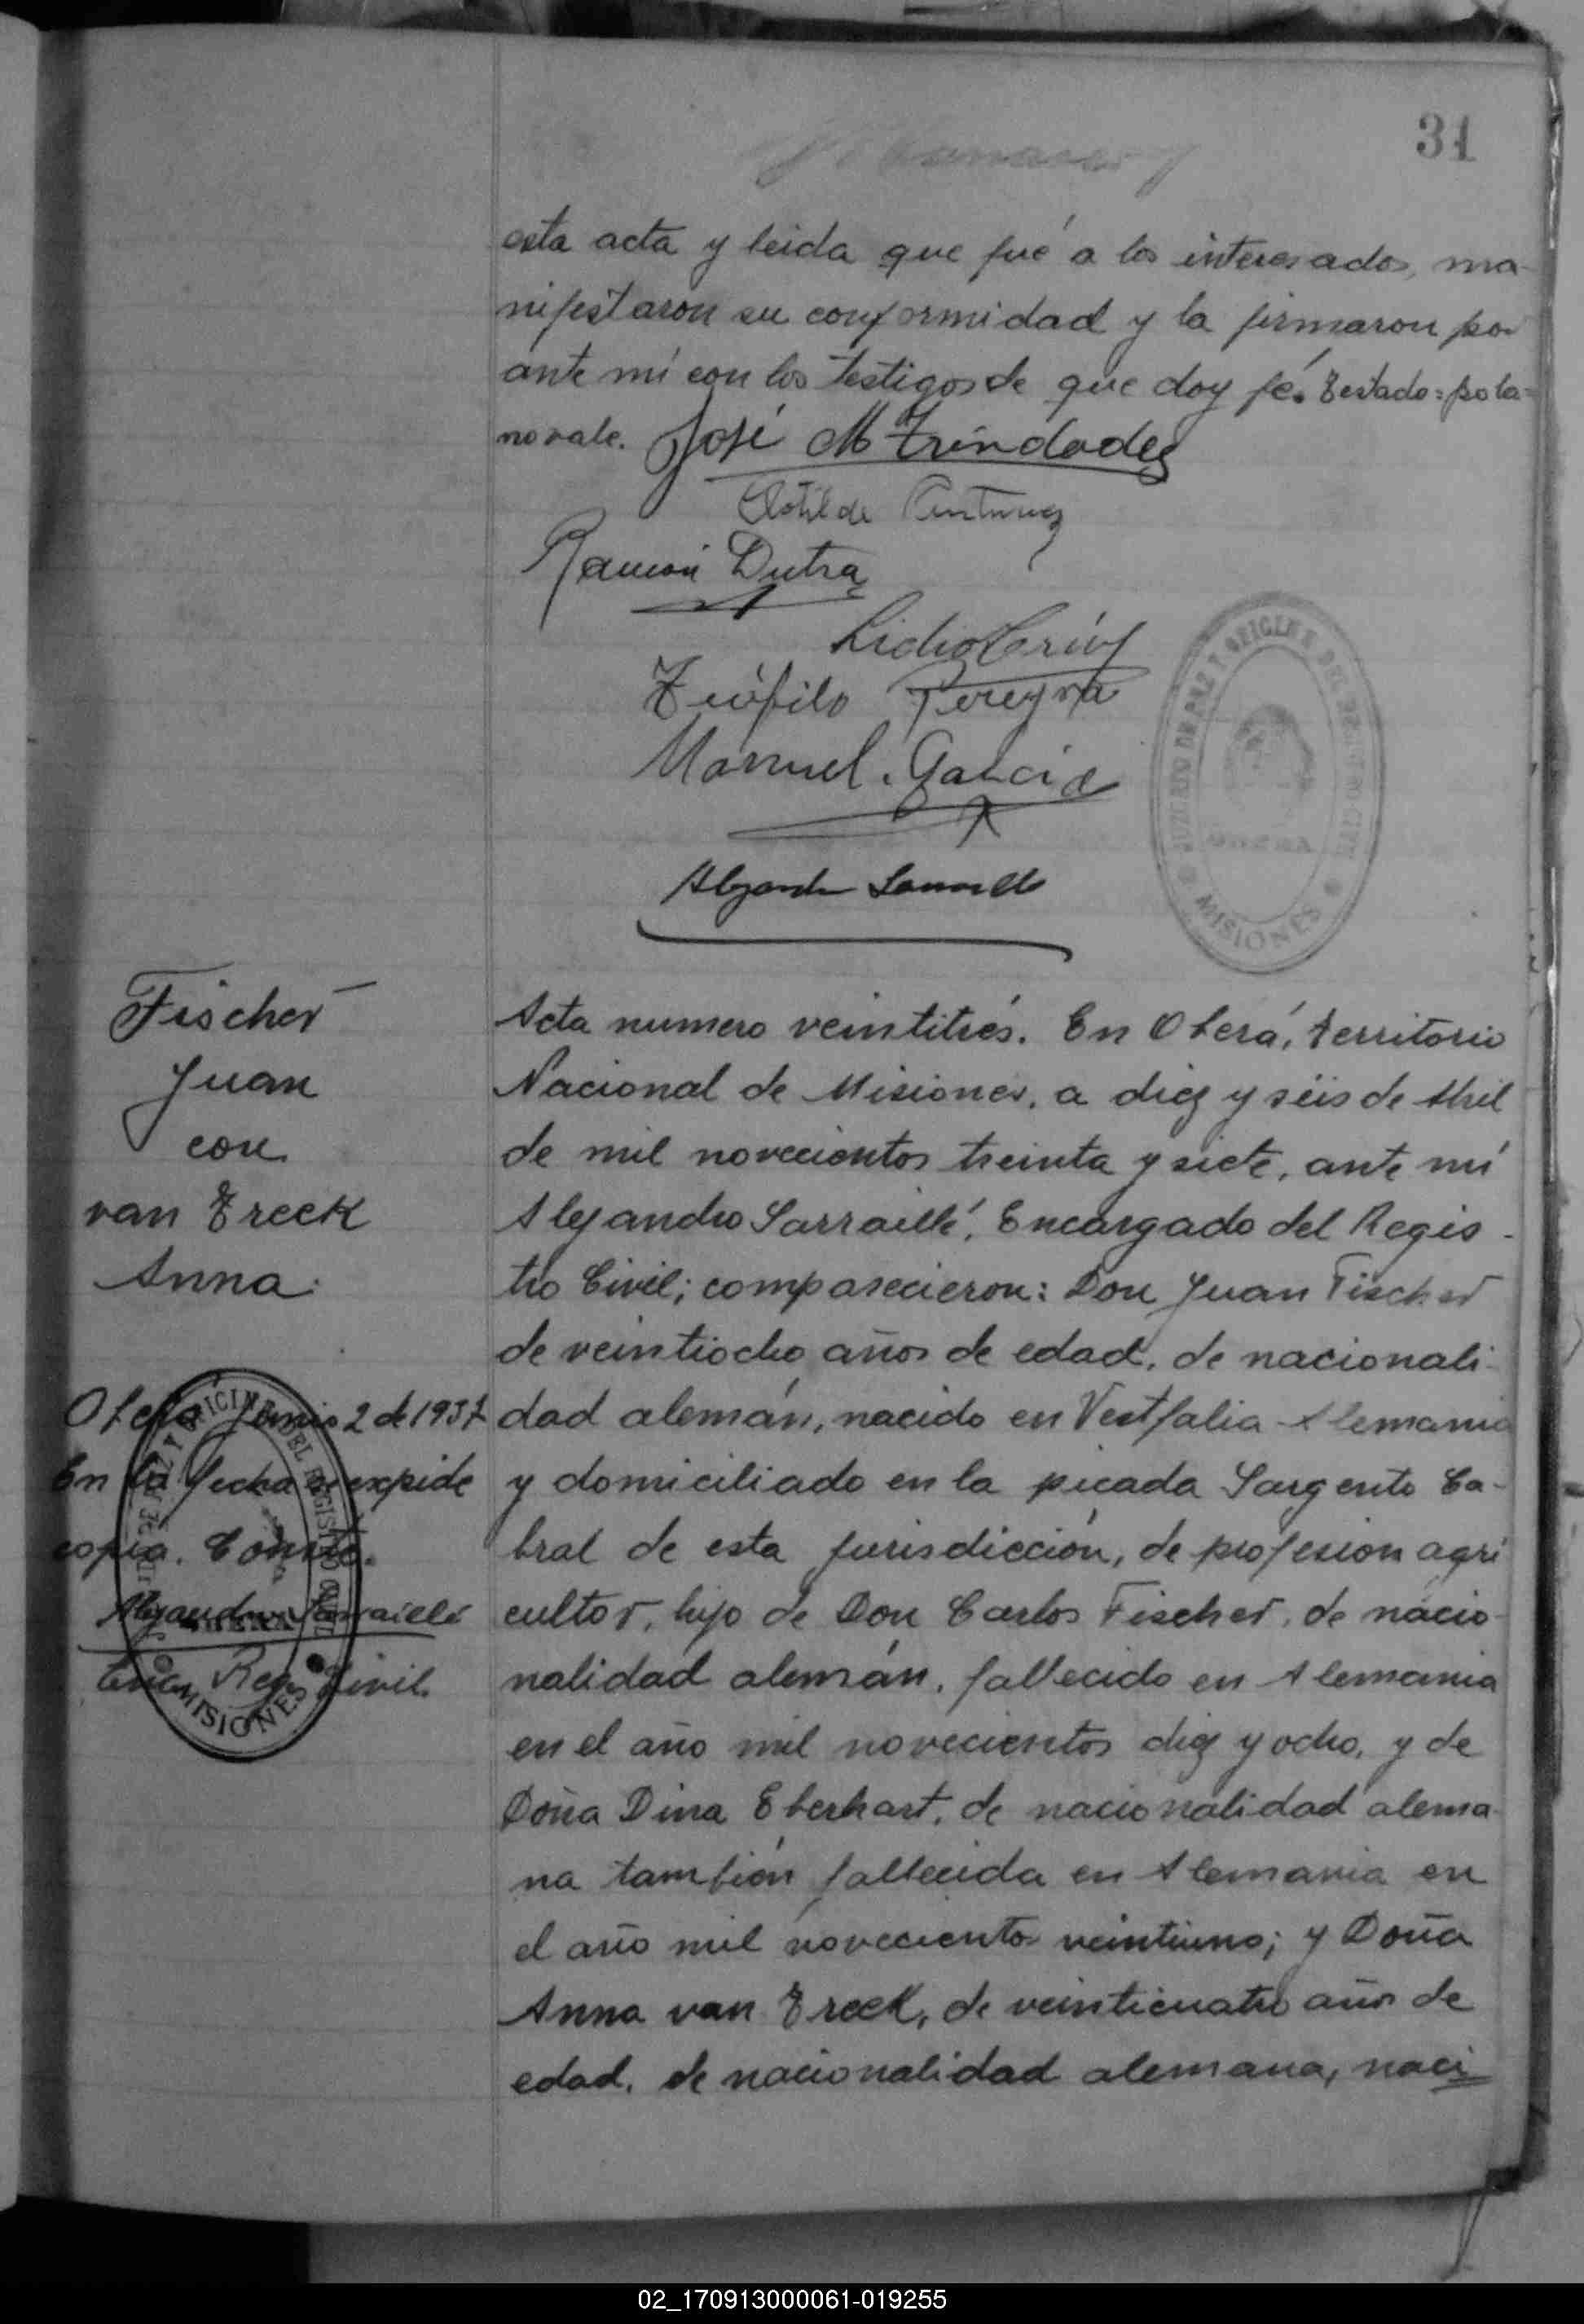 31
esta acta y leida que fué a los interesados, ma-
nifestaron su conformidad y la firmaron por
ante mí con los testigos de que doy fé. Testado=pola=
no vale. José M Trindades
Clotilde Antunez
Ramón Dutra
Lidio
Teófilo Pereyra
Manuel. Garcia
JUZGADO DE PAZ Y OFICINA DEL REGISTRO CIVIL
OBERA
MISIONES
Fischer
Juan
con
van Treek
Anna.
Oberá Junio 2 de 1937
En la fecha se expide
copia. Conste.
Alejandro Sarraillé
Enc. Reg. Civil.
JUZGADO DE PAZ Y OFICINA DEL REGISTRO CIVIL
OBERA
MISIONES
Acta numero veintitrés. En Oberá, territorio
Nacional de Misiones, a diez y séis de Abril
de mil novecientos treinta y siete, ante mí
Alejandro Sarraillé, Encargado del Regis-
tro Civil; comparecieron: Don Juan Fischer
de veintiocho años de edad, de nacionali-
dad alemán, nacido en Vestfalia Alemania
y domiciliado en la picada Sargento Ca-
bral de esta jurisdicción, de profesion agri
cultor, hijo de Don Carlos Fischer, de nacio-
nalidad alemán, fallecido en Alemania
en el año mil novecientos diez y ocho, y de
Doña Dina Eberhart, de nacionalidad alema-
na también fallecida en Alemania en
el año mil novecientos veintiuno; y Doña
Anna van Treek, de veinticuatro años de
edad, de nacionalidad alemana, naci
02_170913000061-019255